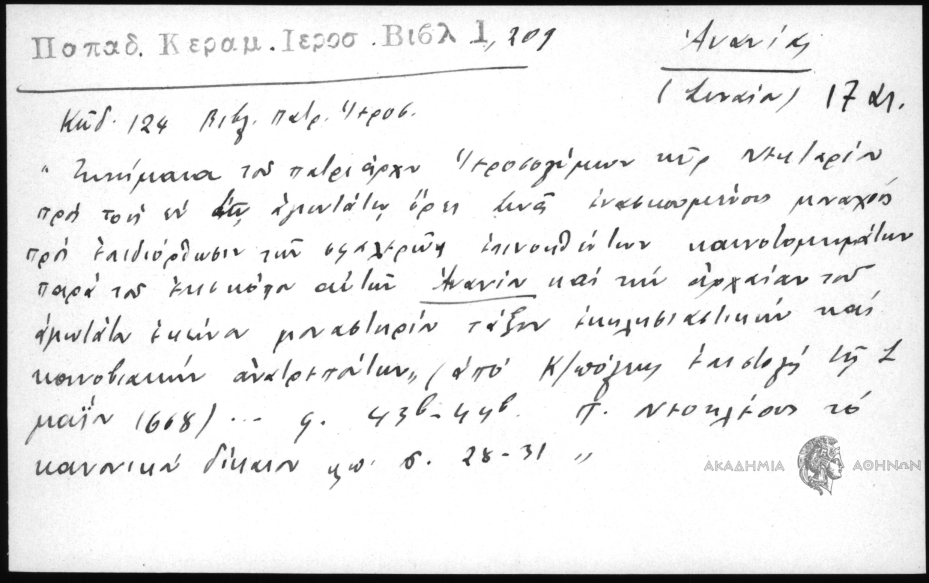 Παπαδ. Κεραμ. Ιεροσ. Βιβλ 1, 209
Ἀνανίας
(Σιναίου) 17 αι.
Κῶδ. 124 Βιβλ. Πατρ. Ἱεροσ.
" Σημείωμα τοῦ πατριάρχου Ἱεροσολύμων κῦρ Νεκταρίου
πρὸς τοὺς ἐν τῷ ἁγιωτάτῳ ὄρει Σινᾶ ἐνασκουμένους μοναχοὺς
πρὸς ἐπιδιόρθωσιν τῶν σφαλερῶς ἐπινοηθέντων καινοτομημάτων
παρὰ τοῦ ἐπισκόπου αὐτῶν Ἀνανίου καὶ τὴν ἀρχαίαν τοῦ
ἁγιωτάτου ἐκείνου μοναστηρίου τάξιν ἐκκλησιαστικὴν καὶ
κοινοβιακὴν ἀνατρεπόντων,, (ἀπὸ Κ/πόλεως ἐπιστολὴ τῆς
μαΐου 1668) ... φ. 43β-44β. Π. Νεοκλέους τὸ
κανονικὸν δίκαιον κλπ. σ. 28-31 ,,
ΑΚΑΔΗΜΙΑ ΑΘΗΝΩΝ